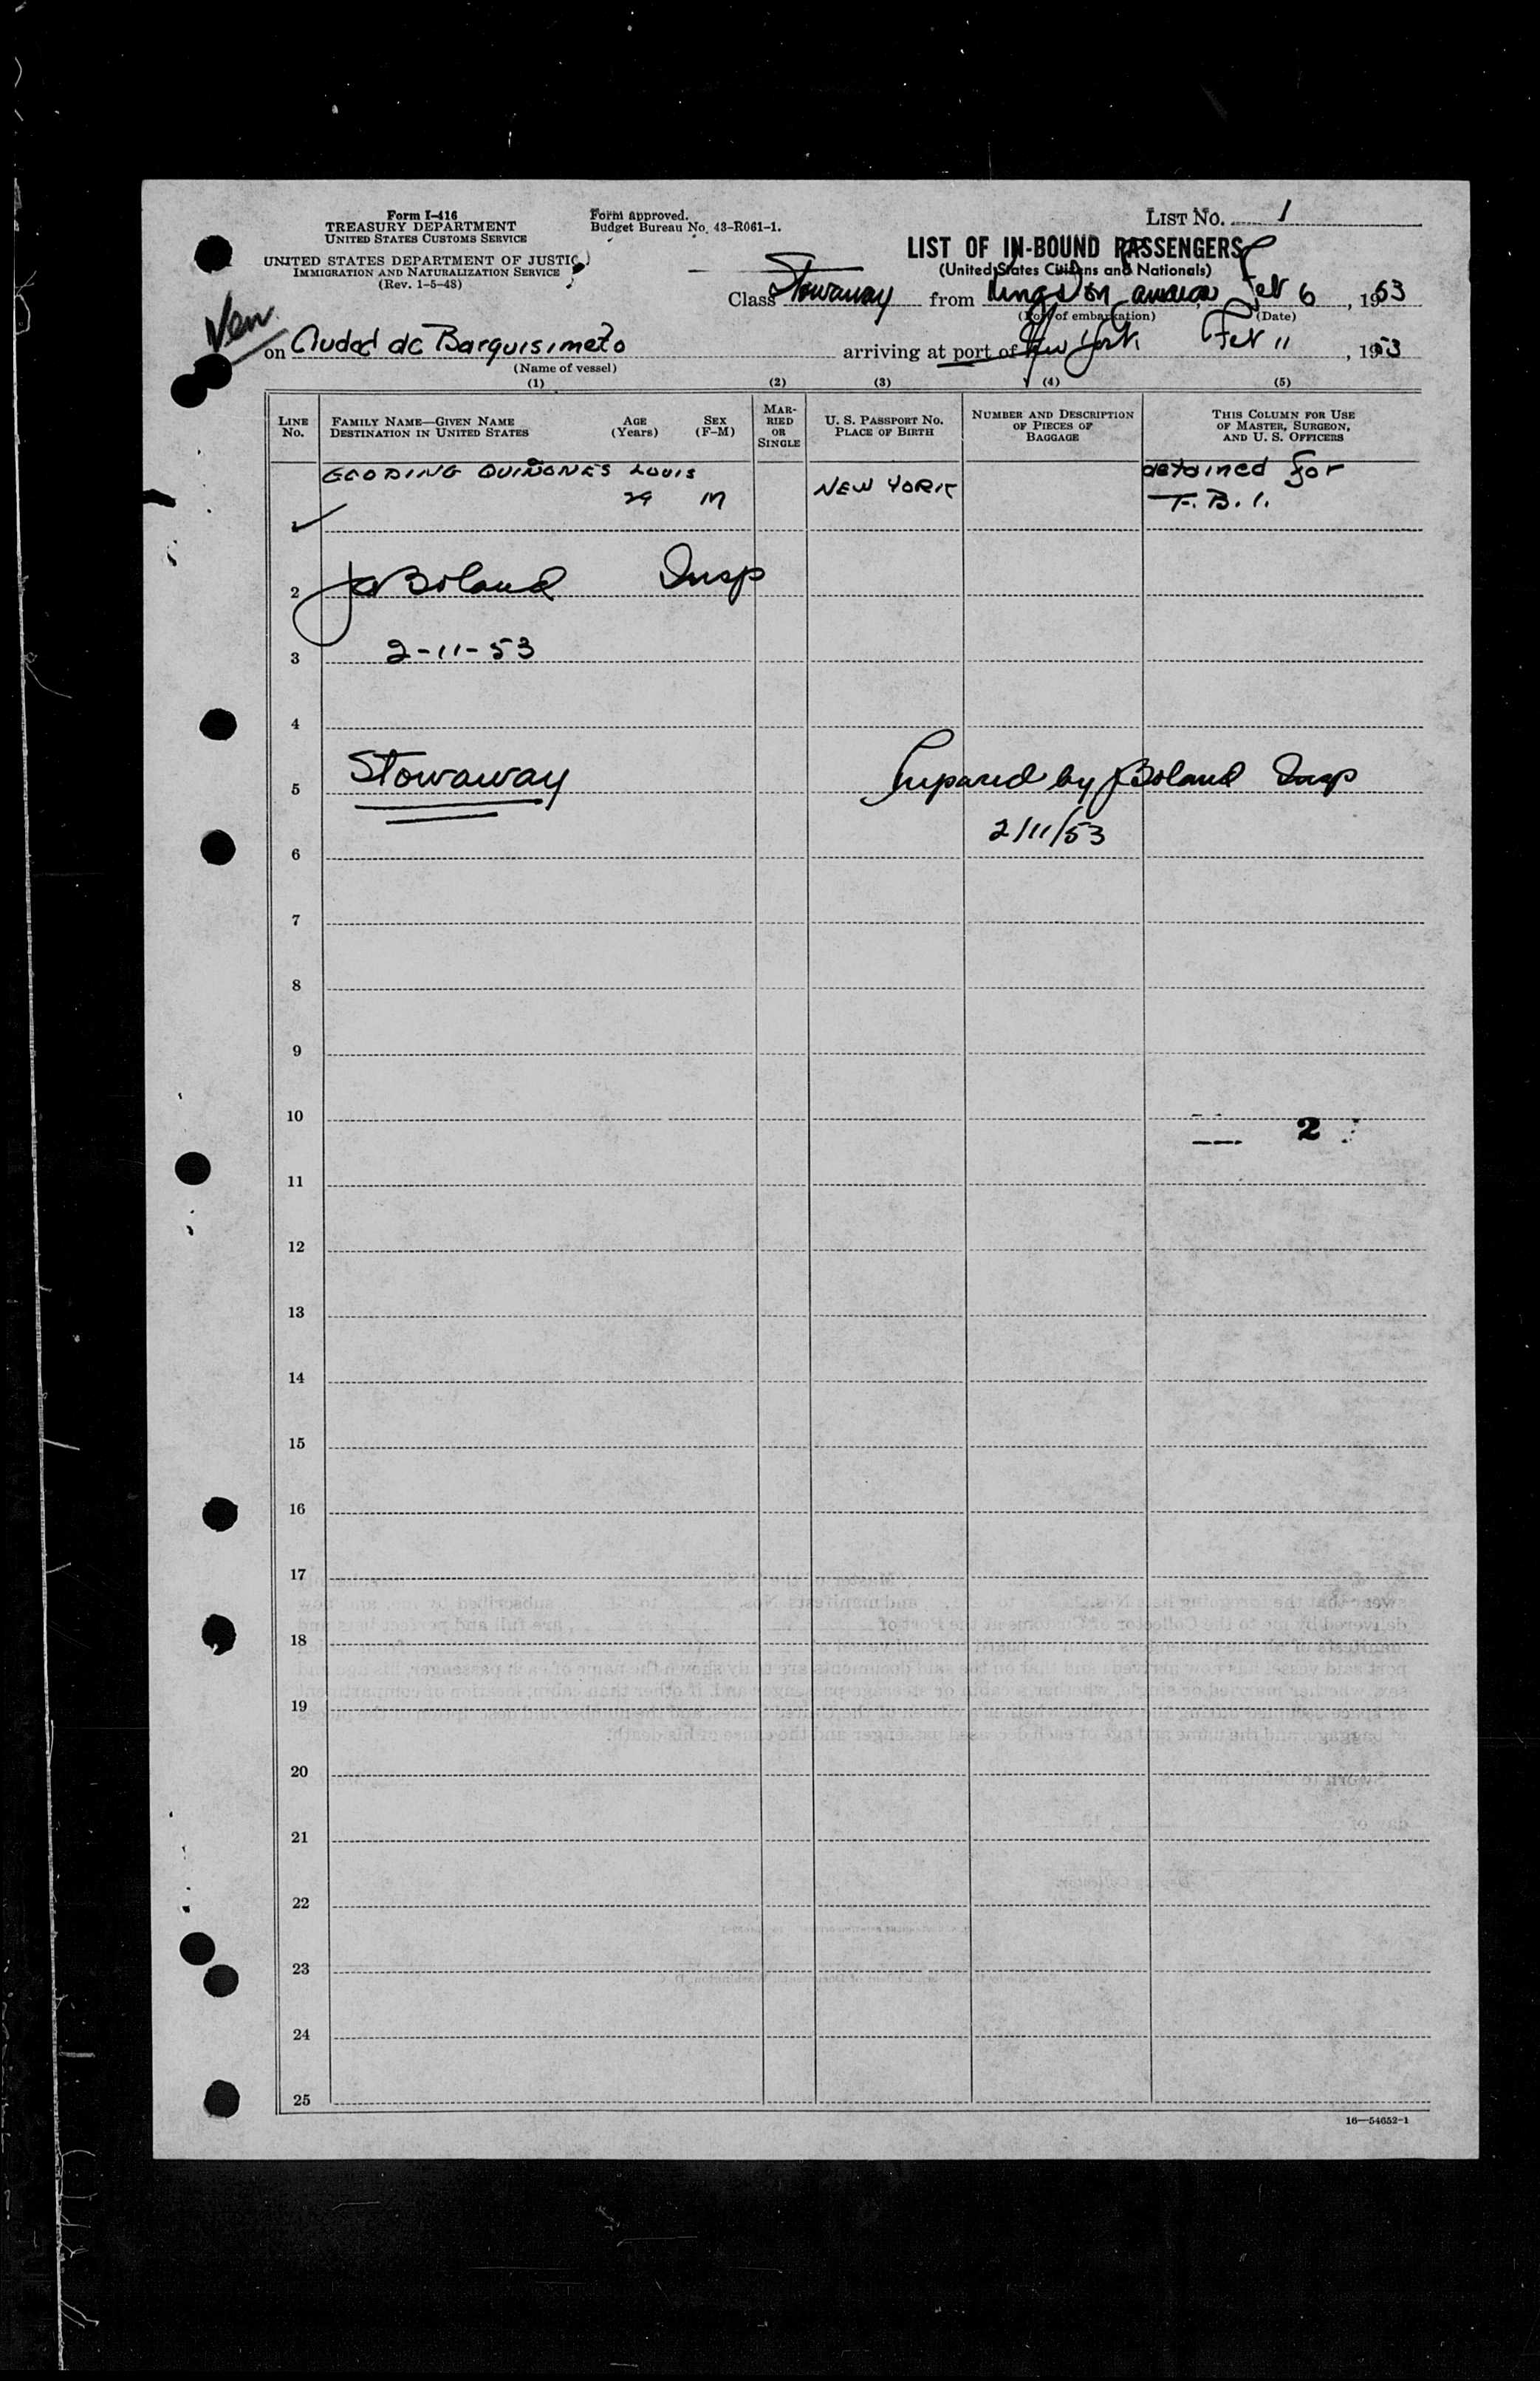 Form I-416
TREASURY DEPARTMENT
UNITED STATES CUSTOMS SERVICE
UNITED STATES DEPARTMENT OF JUSTIC
IMMIGRATION AND NATURALIZATION SERVICE
(Rev. 1-5-48)
Form approved.
Budget Bureau No. 43-R061-1.
LIST NO. 1
LIST OF IN-BOUND PASSENGERS
(United States Citizens and Nationals)
Class Stowaway from Kingston Jamaica Feb 6, 1953
(Port of embarkation) (Date)
Ven
on Ciudad de Barquisimeto arriving at port of New York Feb 11, 1953
(Name of vessel)
(1) (2) (3) (4) (5)
LINE No.
FAMILY NAME—GIVEN NAME
DESTINATION IN UNITED STATES
AGE (Years)
SEX (F-M)
MARRIED OR SINGLE
U. S. PASSPORT NO.
PLACE OF BIRTH
NUMBER AND DESCRIPTION OF PIECES OF BAGGAGE
THIS COLUMN FOR USE OF MASTER, SURGEON, AND U. S. OFFICERS
GOODING QUIÑONES LOUIS detained for
29 M NEW YORK F.B.I.
1
2 Boland Insp
3 2-11-53
4
5 Stowaway Prepared by Boland Insp
2/11/53
6
7
8
9
10
2
11
12
13
14
15
16
17
18
19
20
21
22
23
24
25
16—54652-1